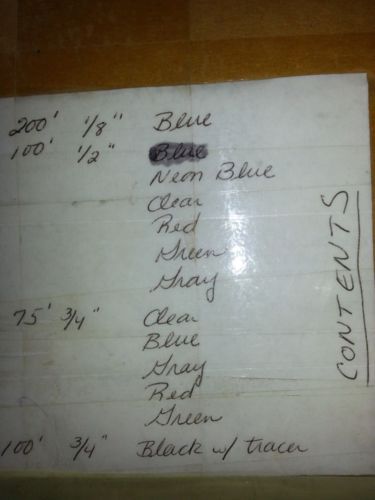 200' 1/8" Blue
100' 1/2" Blue
Neon Blue
Clear
Red
Green
Gray
75' 3/4" Clear
Blue
Gray
Red
Green
100' 3/4" Black w/ tracer
CONTENTS